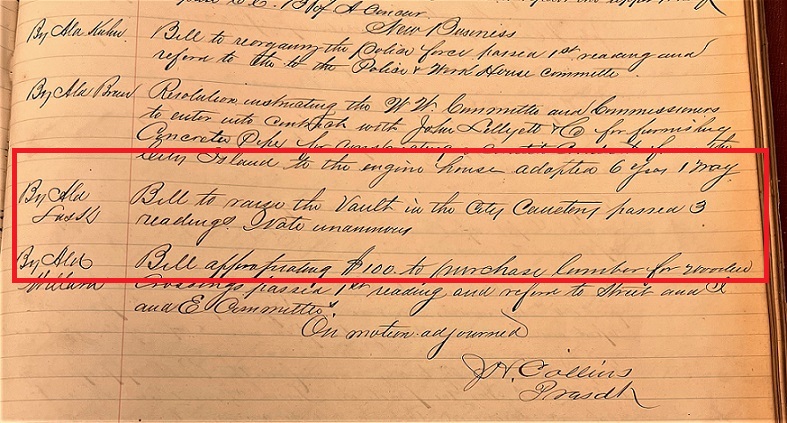 New Business
By Ald Kuhn. Bill to reorganize the Police force passed 1st reading and
referd to the to the Police & Work House committee.
By Ald Braun Resolution instructing the W W Committee and Commissioners
to enter into Contract with John Lellyett & Co for furnishing
Concrete Pipe for
City Island to the engine house adopted 6 yeas 1 nay
By Ald Bill to raise the Vault in the City Cemetery passed 3
readings. Vote unanimous
By Ald Bill appropriating $100. to purchase lumber for wooden
Crossings passed 1st reading and referd to Street and
and E Committee
On motion adjourned
J N. Collins